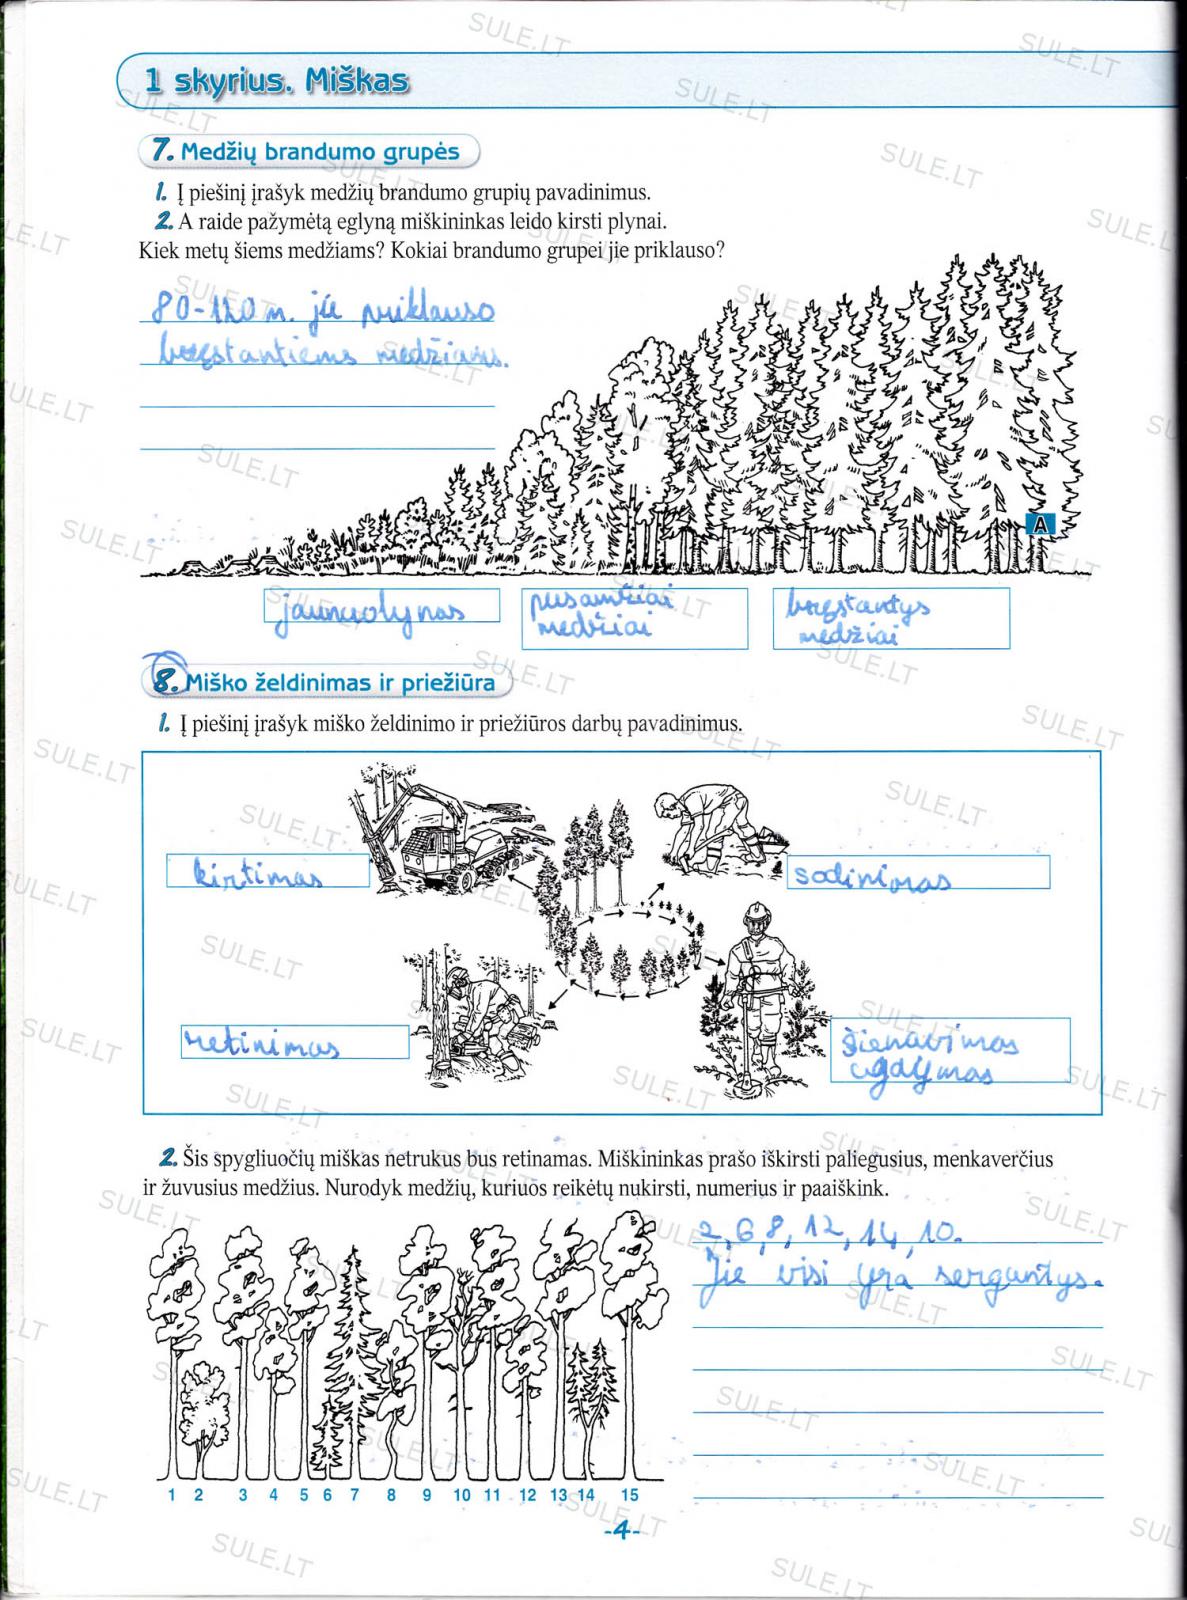 1 skyrius. Miškas
7. Medžių brandumo grupės
1. Į piešinį įrašyk medžių brandumo grupių pavadinimus.
2. A raide pažymėtą eglyną miškininkas leido kirsti plynai.
Kiek metų šiems medžiams? Kokiai brandumo grupei jie priklauso?
80-120 m. jie priklauso
bręstantiems medžiams.
A
jaunuolynas
pusamžiai
medžiai
bręstantys
medžiai
8. Miško želdinimas ir priežiūra
1. Į piešinį įrašyk miško želdinimo ir priežiūros darbų pavadinimus.
kirtimas
sodinimas
retinimas
šienavimas
ugdymas
2. Šis spygliuočių miškas netrukus bus retinamas. Miškininkas prašo iškirsti paliegusius, menkaverčius
ir žuvusius medžius. Nurodyk medžių, kuriuos reikėtų nukirsti, numerius ir paaiškink.
2, 6, 8, 12, 14, 10.
Jie visi yra sergantys.
1 2 3 4 5 6 7 8 9 10 11 12 13 14 15
-4-
SULE.LT